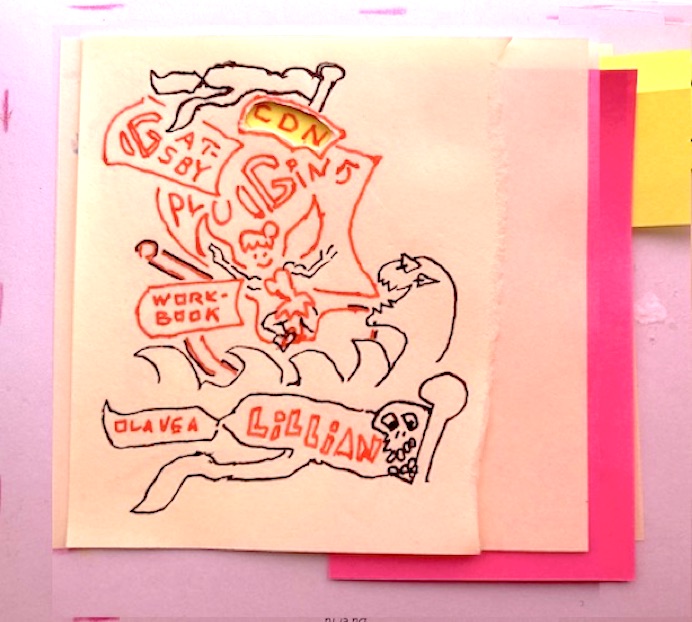 CDN
GAT-
SBY
PLUGiNS
WORK-
BOOK
OLAVEA LiLLiAN